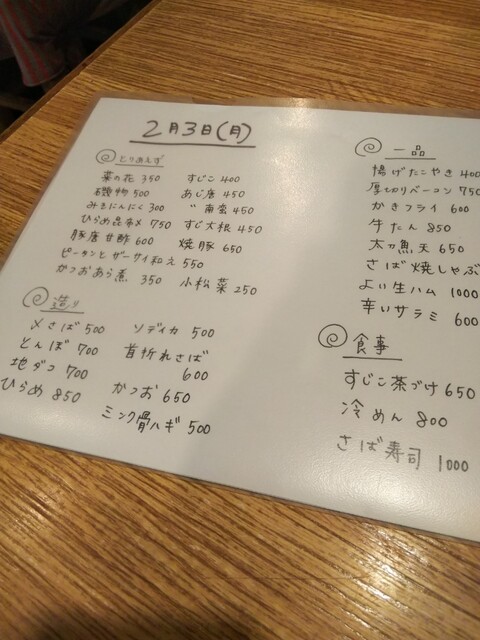 2月3日(月)
とりあえず
菜の花 350
磯物 500
みそにんにく 300
ひらめ昆布〆 750
豚唐甘酢 600
ピータンとザーサイ和え 550
かつおあら煮 350
すじこ 400
あじ唐 450
〃 南蛮 450
すじ大根 450
焼豚 650
小松菜 250
造り
〆さば 500
とんぼ 700
地ダコ 700
ひらめ 850
ソデイカ 500
首折れさば
600
かつお 650
ミンク骨ハギ 500
一品
揚げたこやき 400
厚切りベーコン 750
かきフライ 600
牛たん 850
太刀魚天 650
さば焼しゃぶ
よい生ハム 1000
辛いサラミ 600
食事
すじこ茶づけ 650
冷めん 800
さば寿司 1000